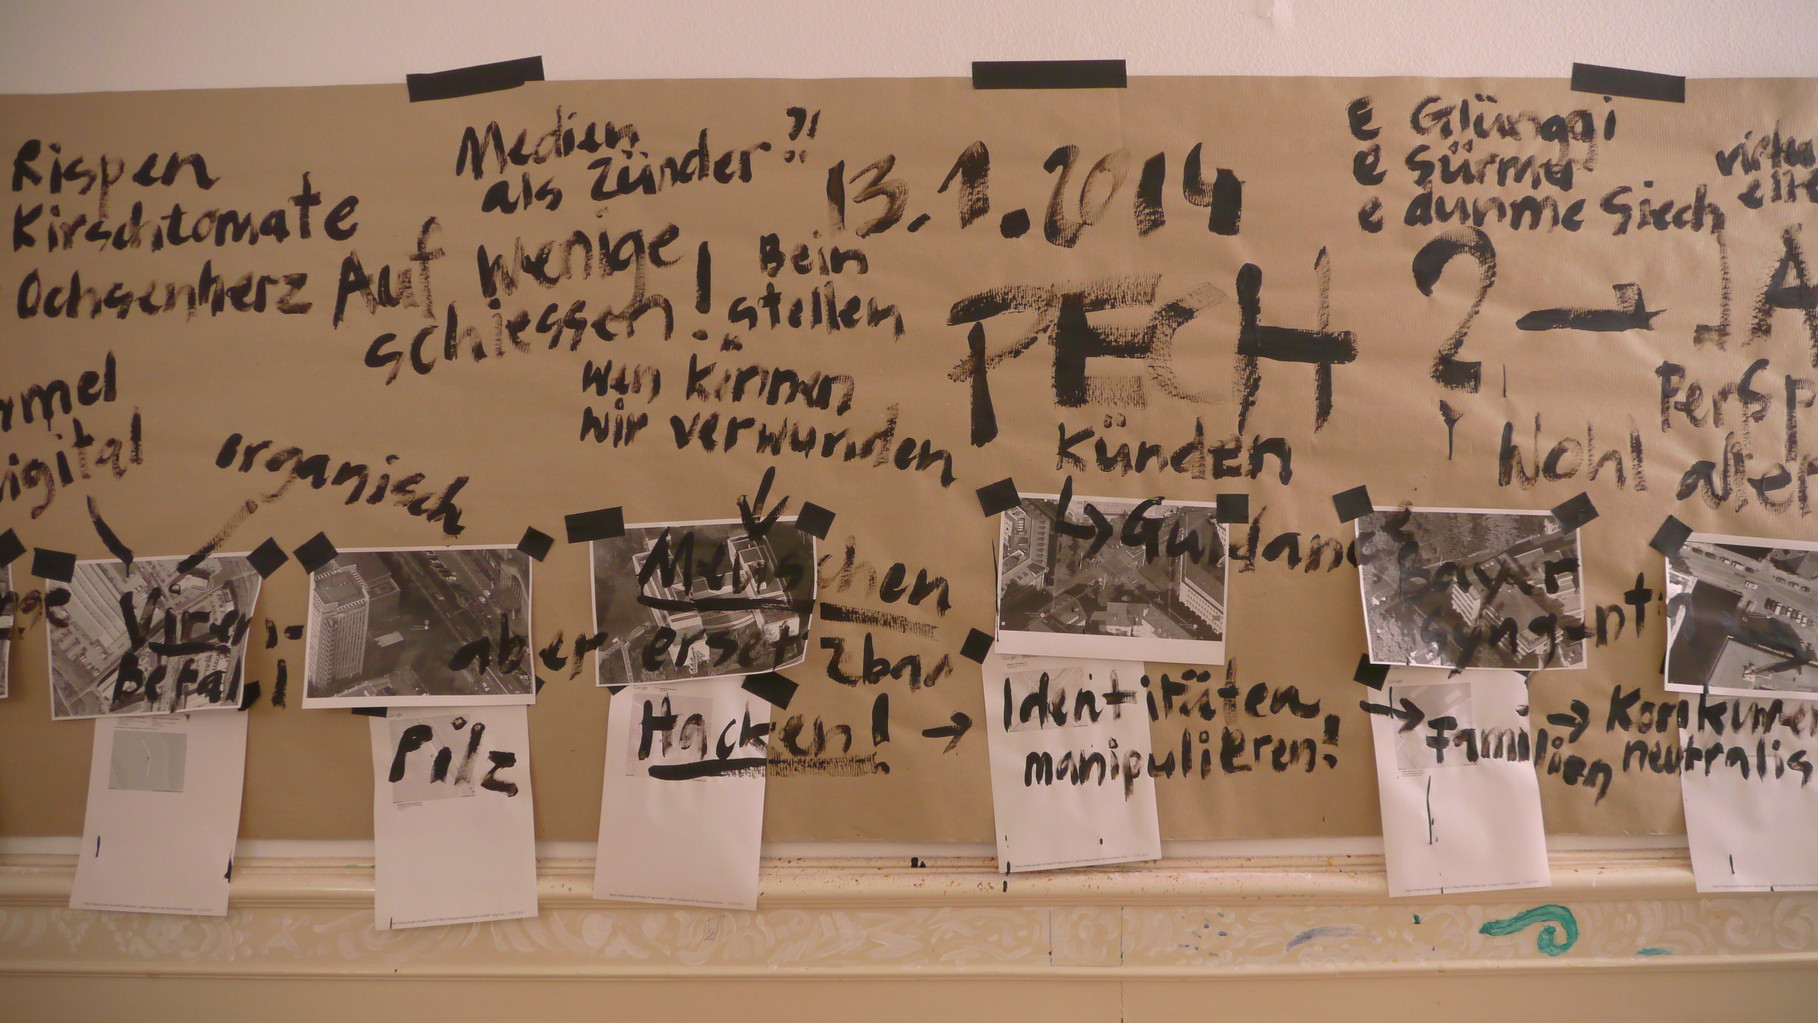 Rispen
Kirschtomate
Ochsenherz
Medien
als Zünder?!
Auf wenige
schiessen!
Bein
stellen
13.1.2014
PECH
E Glünggi
e Sürmel
e dumme Siech
? → JA
Wohl
organisch
wen können
wir verwunden
Künden
↳ Guidance
Viren-
Befall!
Menschen
aber ersetzbar
Bayer
Pilz
Hacken! → Identitäten
manipulieren!
→ Familien →